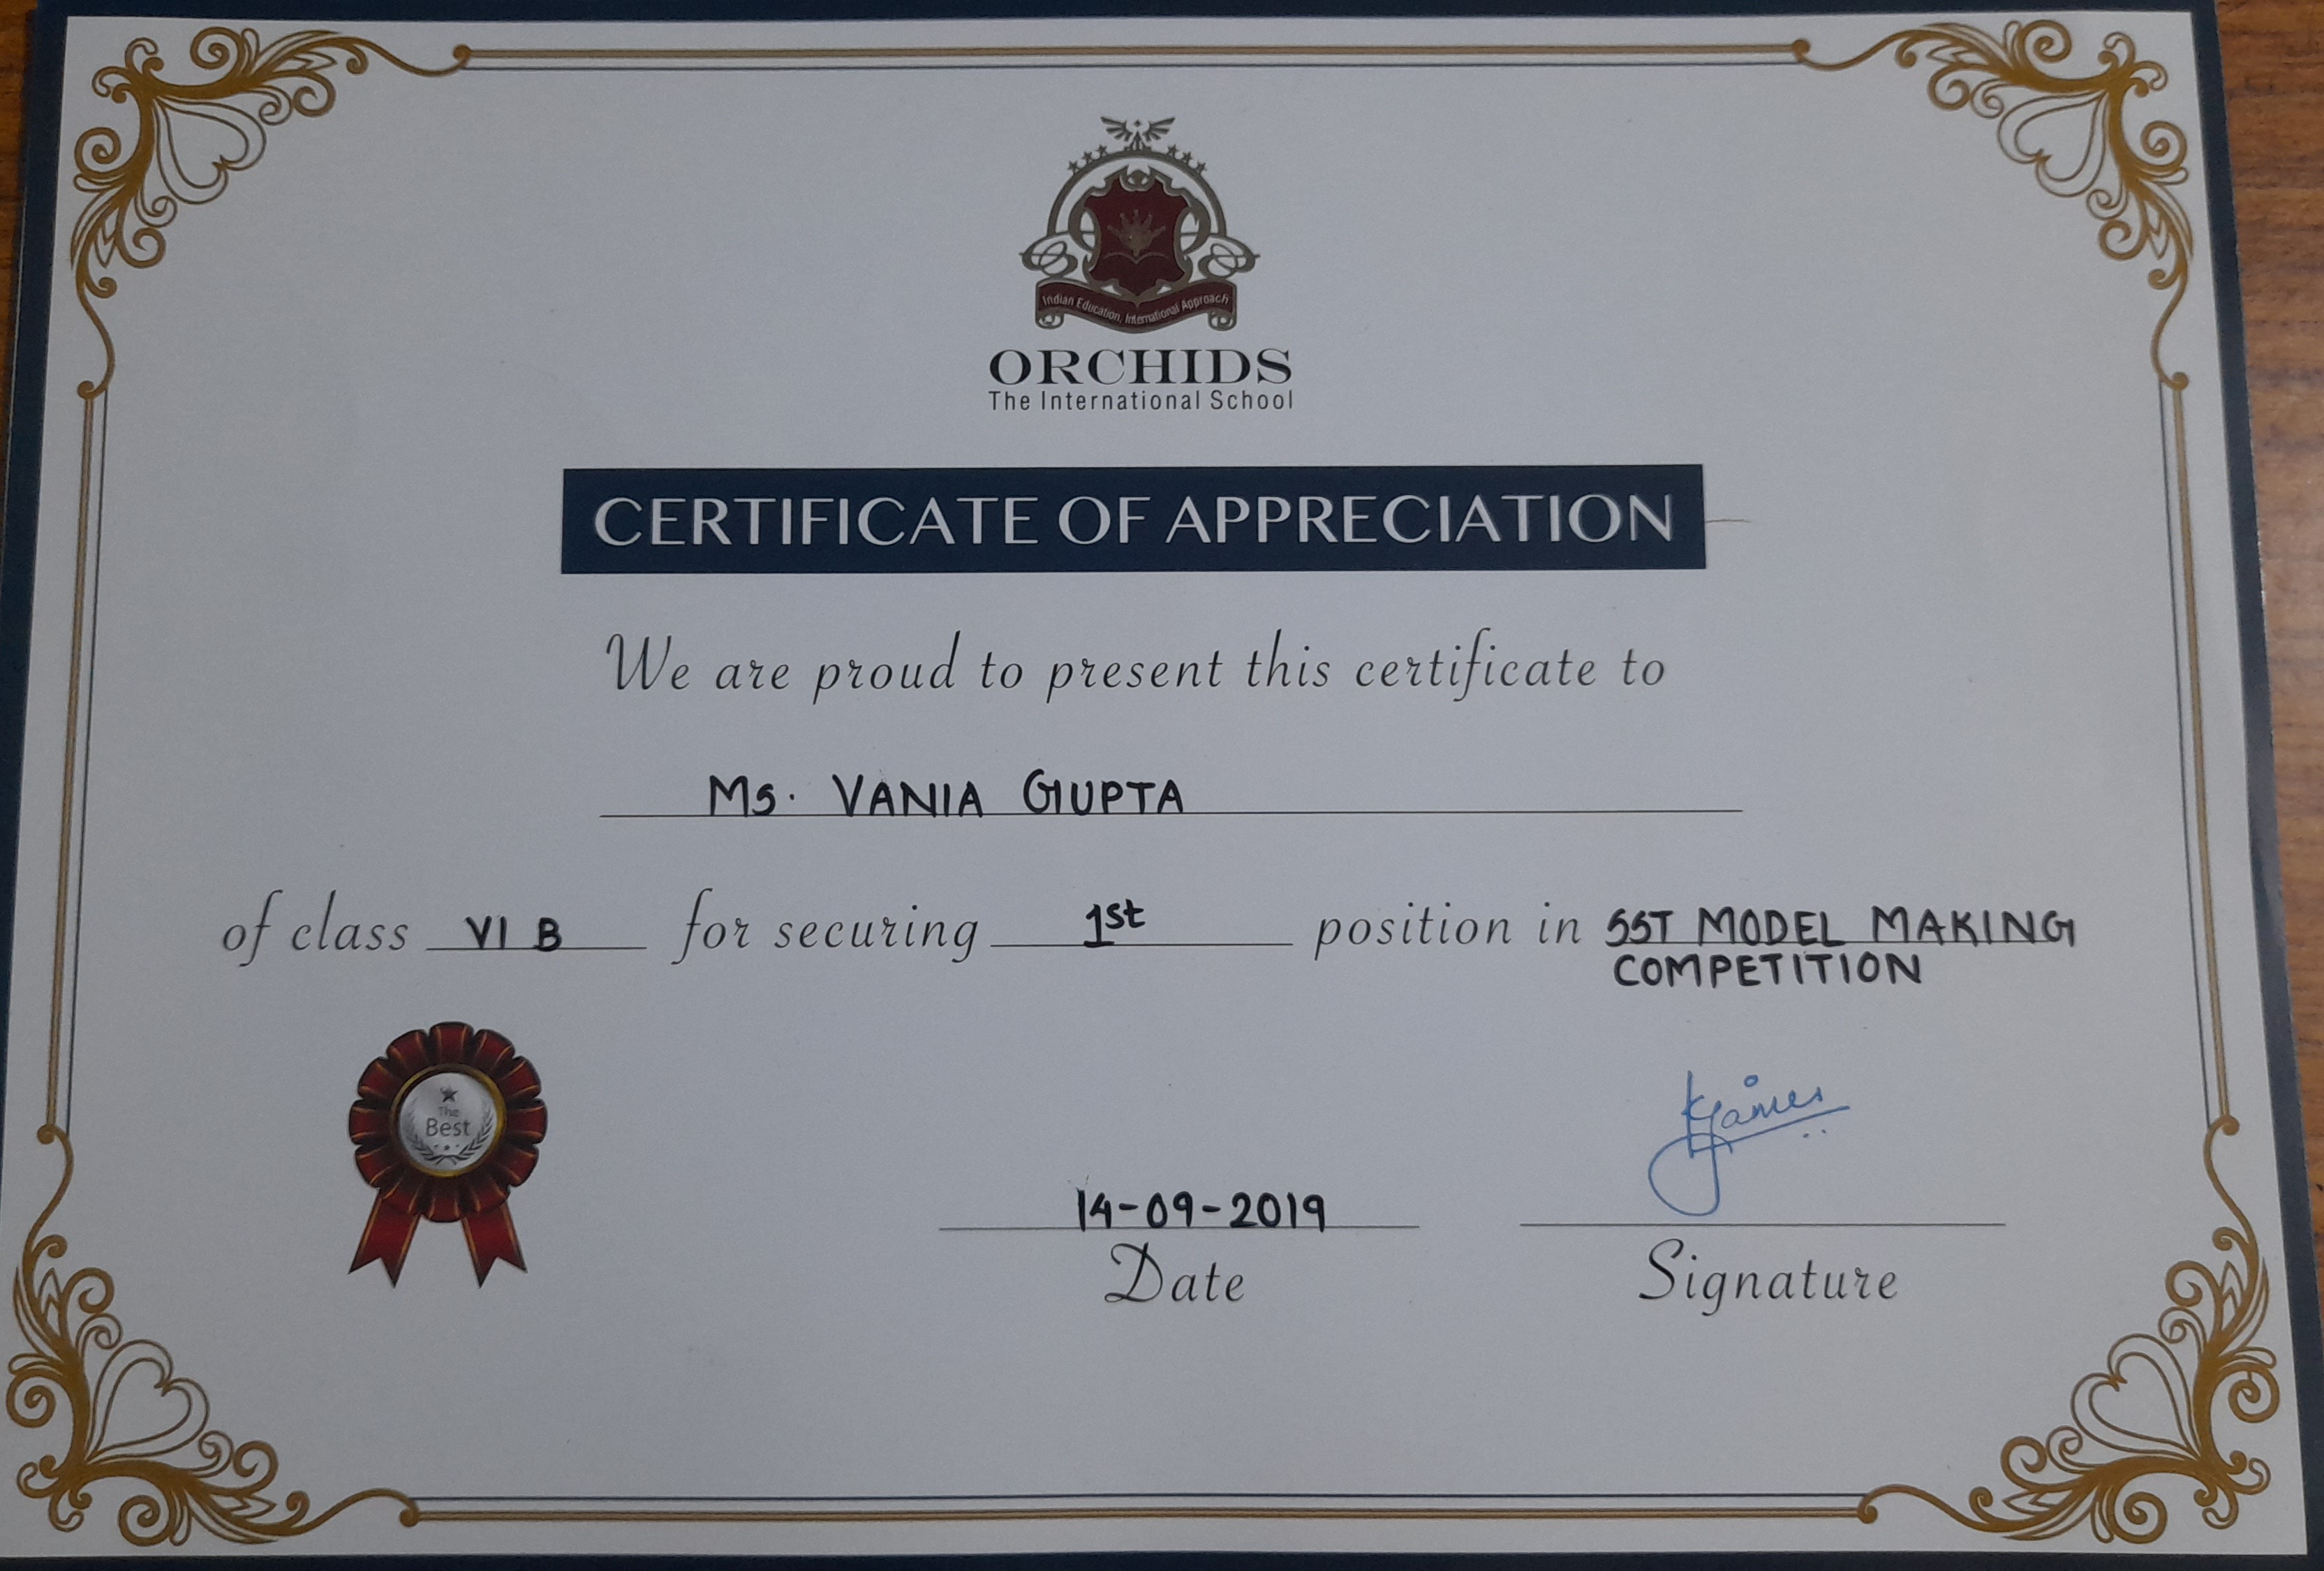 Indian Education, International Approach
ORCHIDS
The International School
CERTIFICATE OF APPRECIATION
We are proud to present this certificate to
Ms. VANIA GUPTA
of class VI B for securing 1st position in SST MODEL MAKING
COMPETITION
The
Best
14-09-2019
Date
Signature